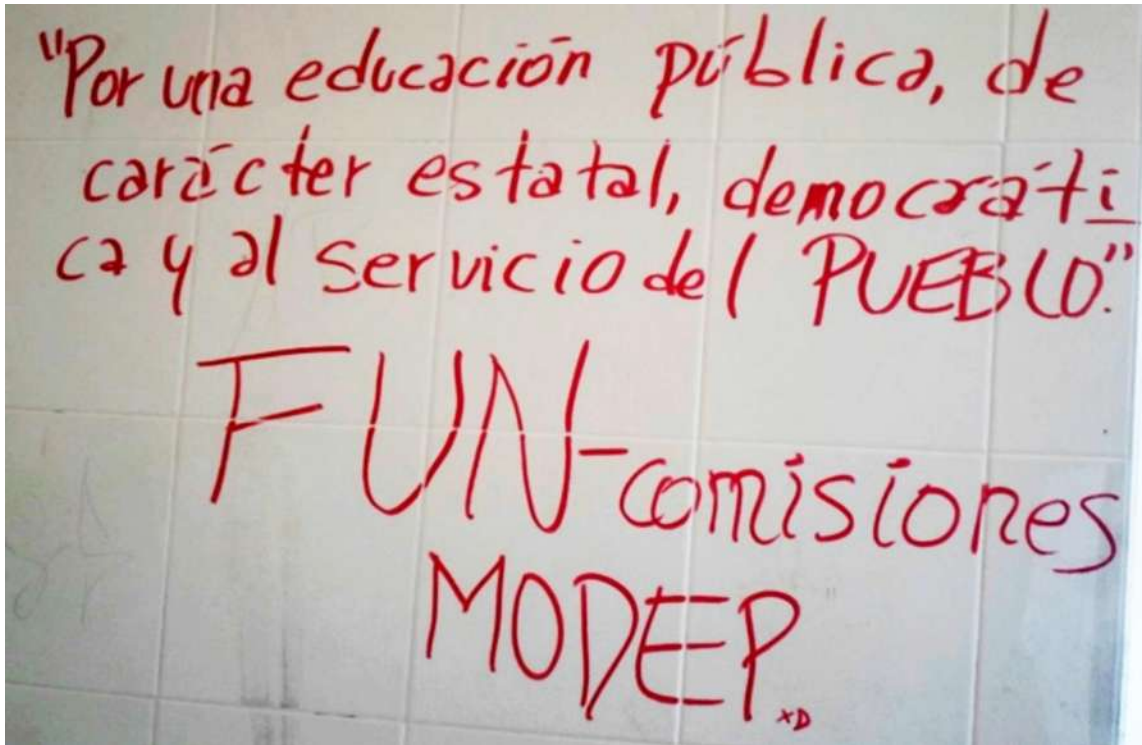 "Por una educación pública, de
carácter estatal, democráti
ca y al servicio del PUEBLO."
FUN-comisiones
MODEP.
xD